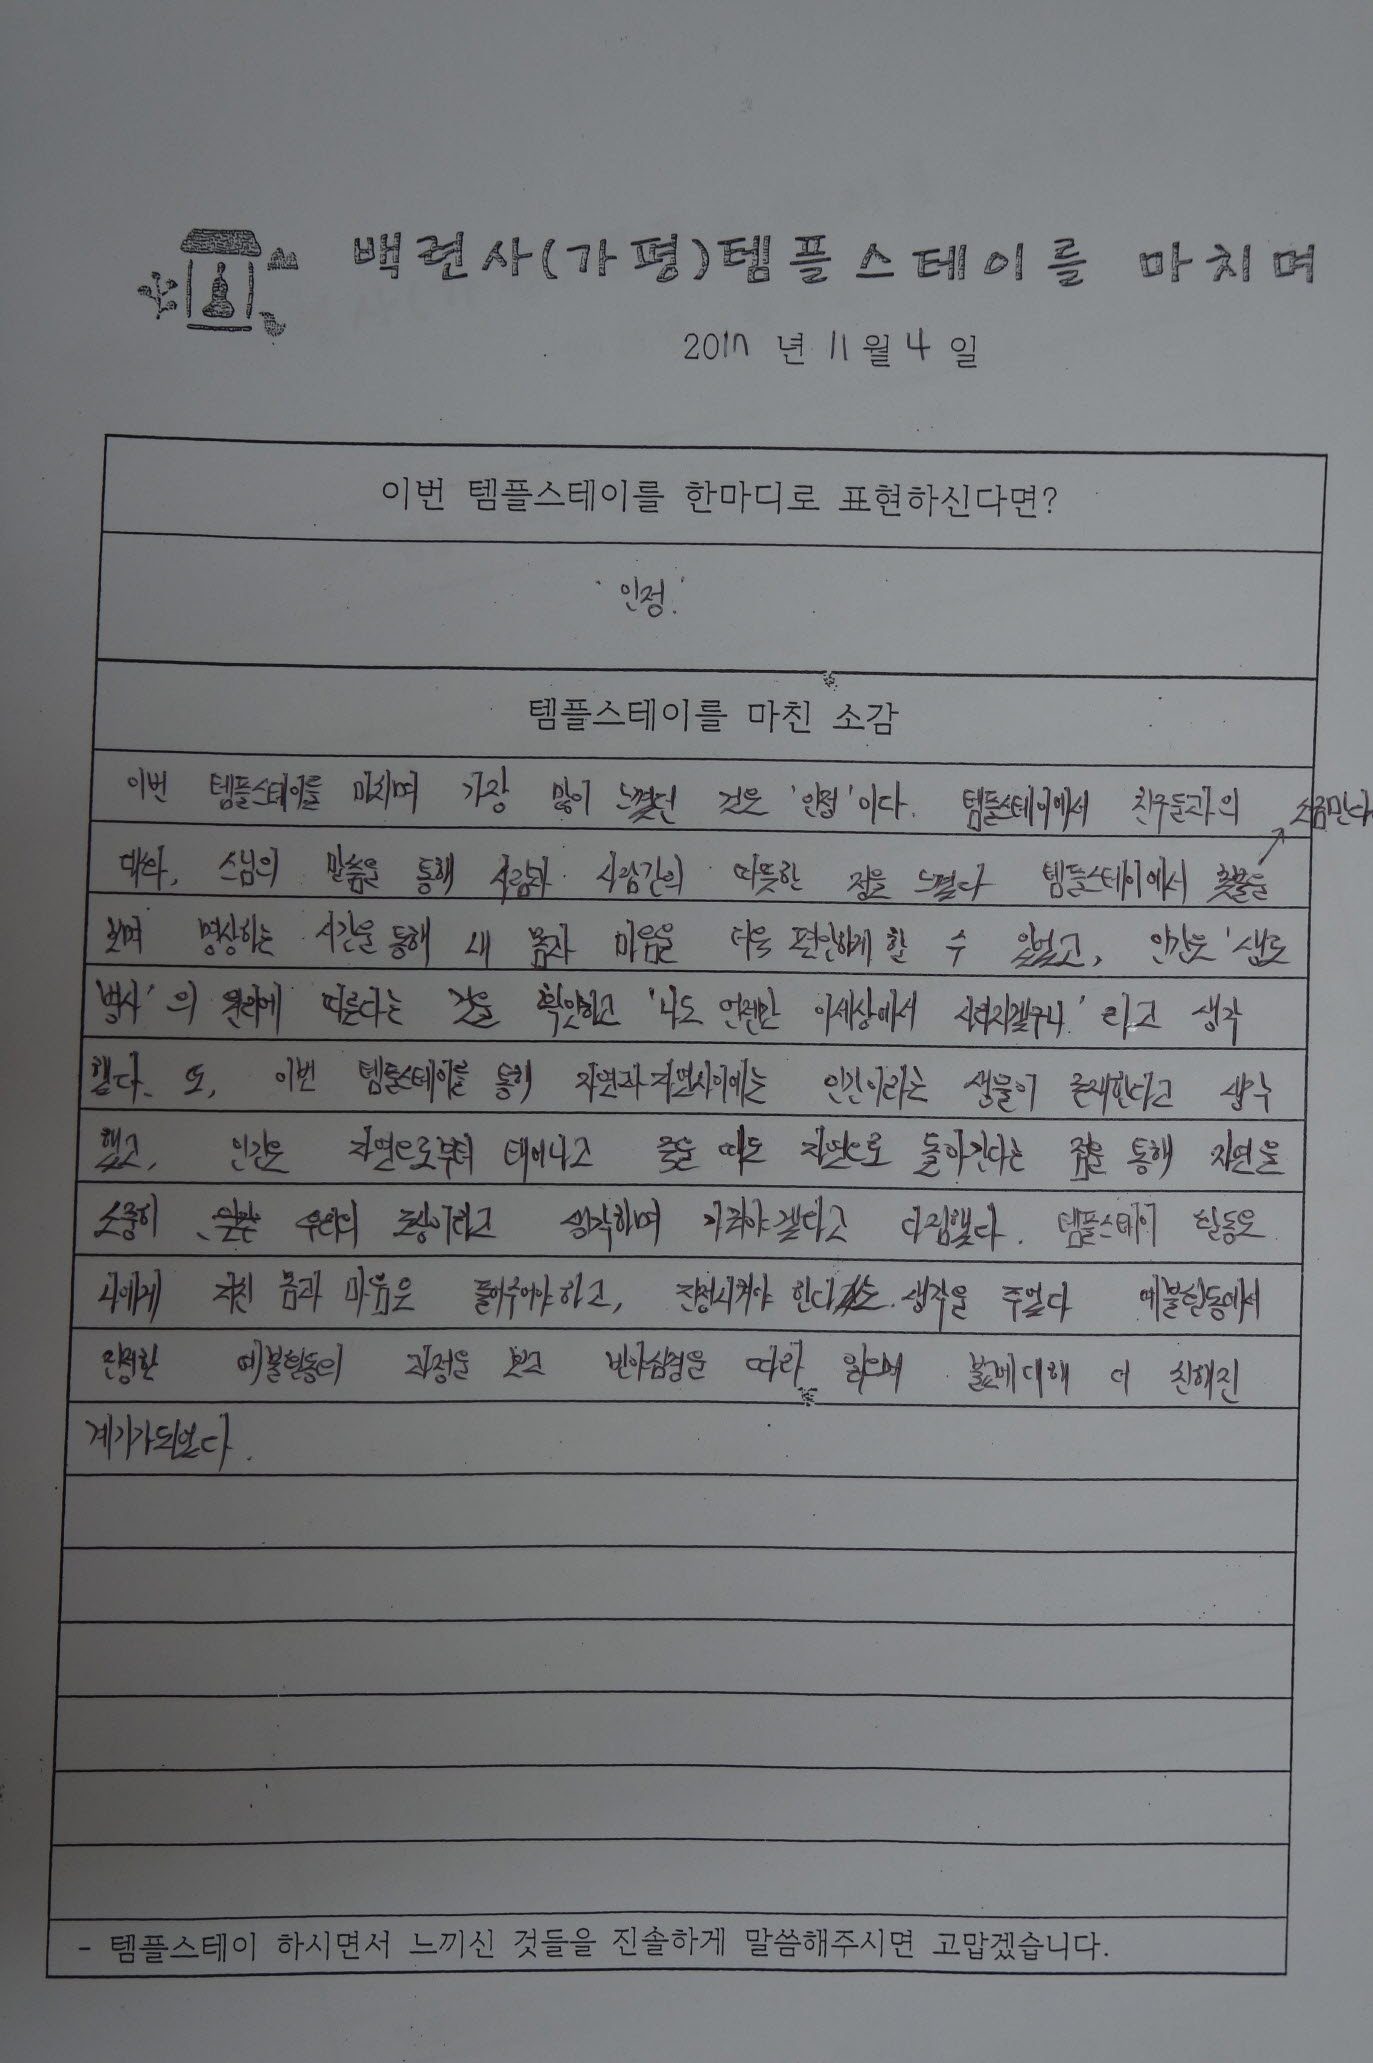 백련사(가평)템플스테이를 마치며
2017 년 11 월 4 일
이번 템플스테이를 한마디로 표현하신다면?
'인정.'
템플스테이를 마친 소감
이번 템플스테이를 마치며 가장 많이 느꼈던 것은 '인정'이다. 템플스테이에서 친구들과의
대화, 스님의 말씀을 통해 사람과 사람간의 따뜻한 정을 느꼈다 템플스테이에서 촛불을
보며 명상하는 시간을 통해 내 몸과 마음을 더욱 편안하게 할 수 있었고, 인간은 '생로
병사'의 원리에 따른다는 것을 확인하고 '나도 언젠간 이세상에서 사라지겠구나.'라고 생각
했다. 또, 이번 템플스테이를 통해 자연과 자연사이에는 인간이라는 생물이 존재한다고 생각
했고, 인간은 자연으로부터 태어나고 죽을 때도 자연으로 돌아간다는 점을 통해 자연을
소중히 우리의 조상이라고 생각하며 가꿔야겠다고 다짐했다. 템플스테이 활동은
나에게 지친 몸과 마음은 풀어주어야하고, 진정시켜야 한다는 생각을 주었다 예불활동에서
진정한 예불활동의 과정을 보고 반야심경을 따라 읽으며 불교에대해 더 친해진
계기가되었다.
- 템플스테이 하시면서 느끼신 것들을 진솔하게 말씀해주시면 고맙겠습니다.